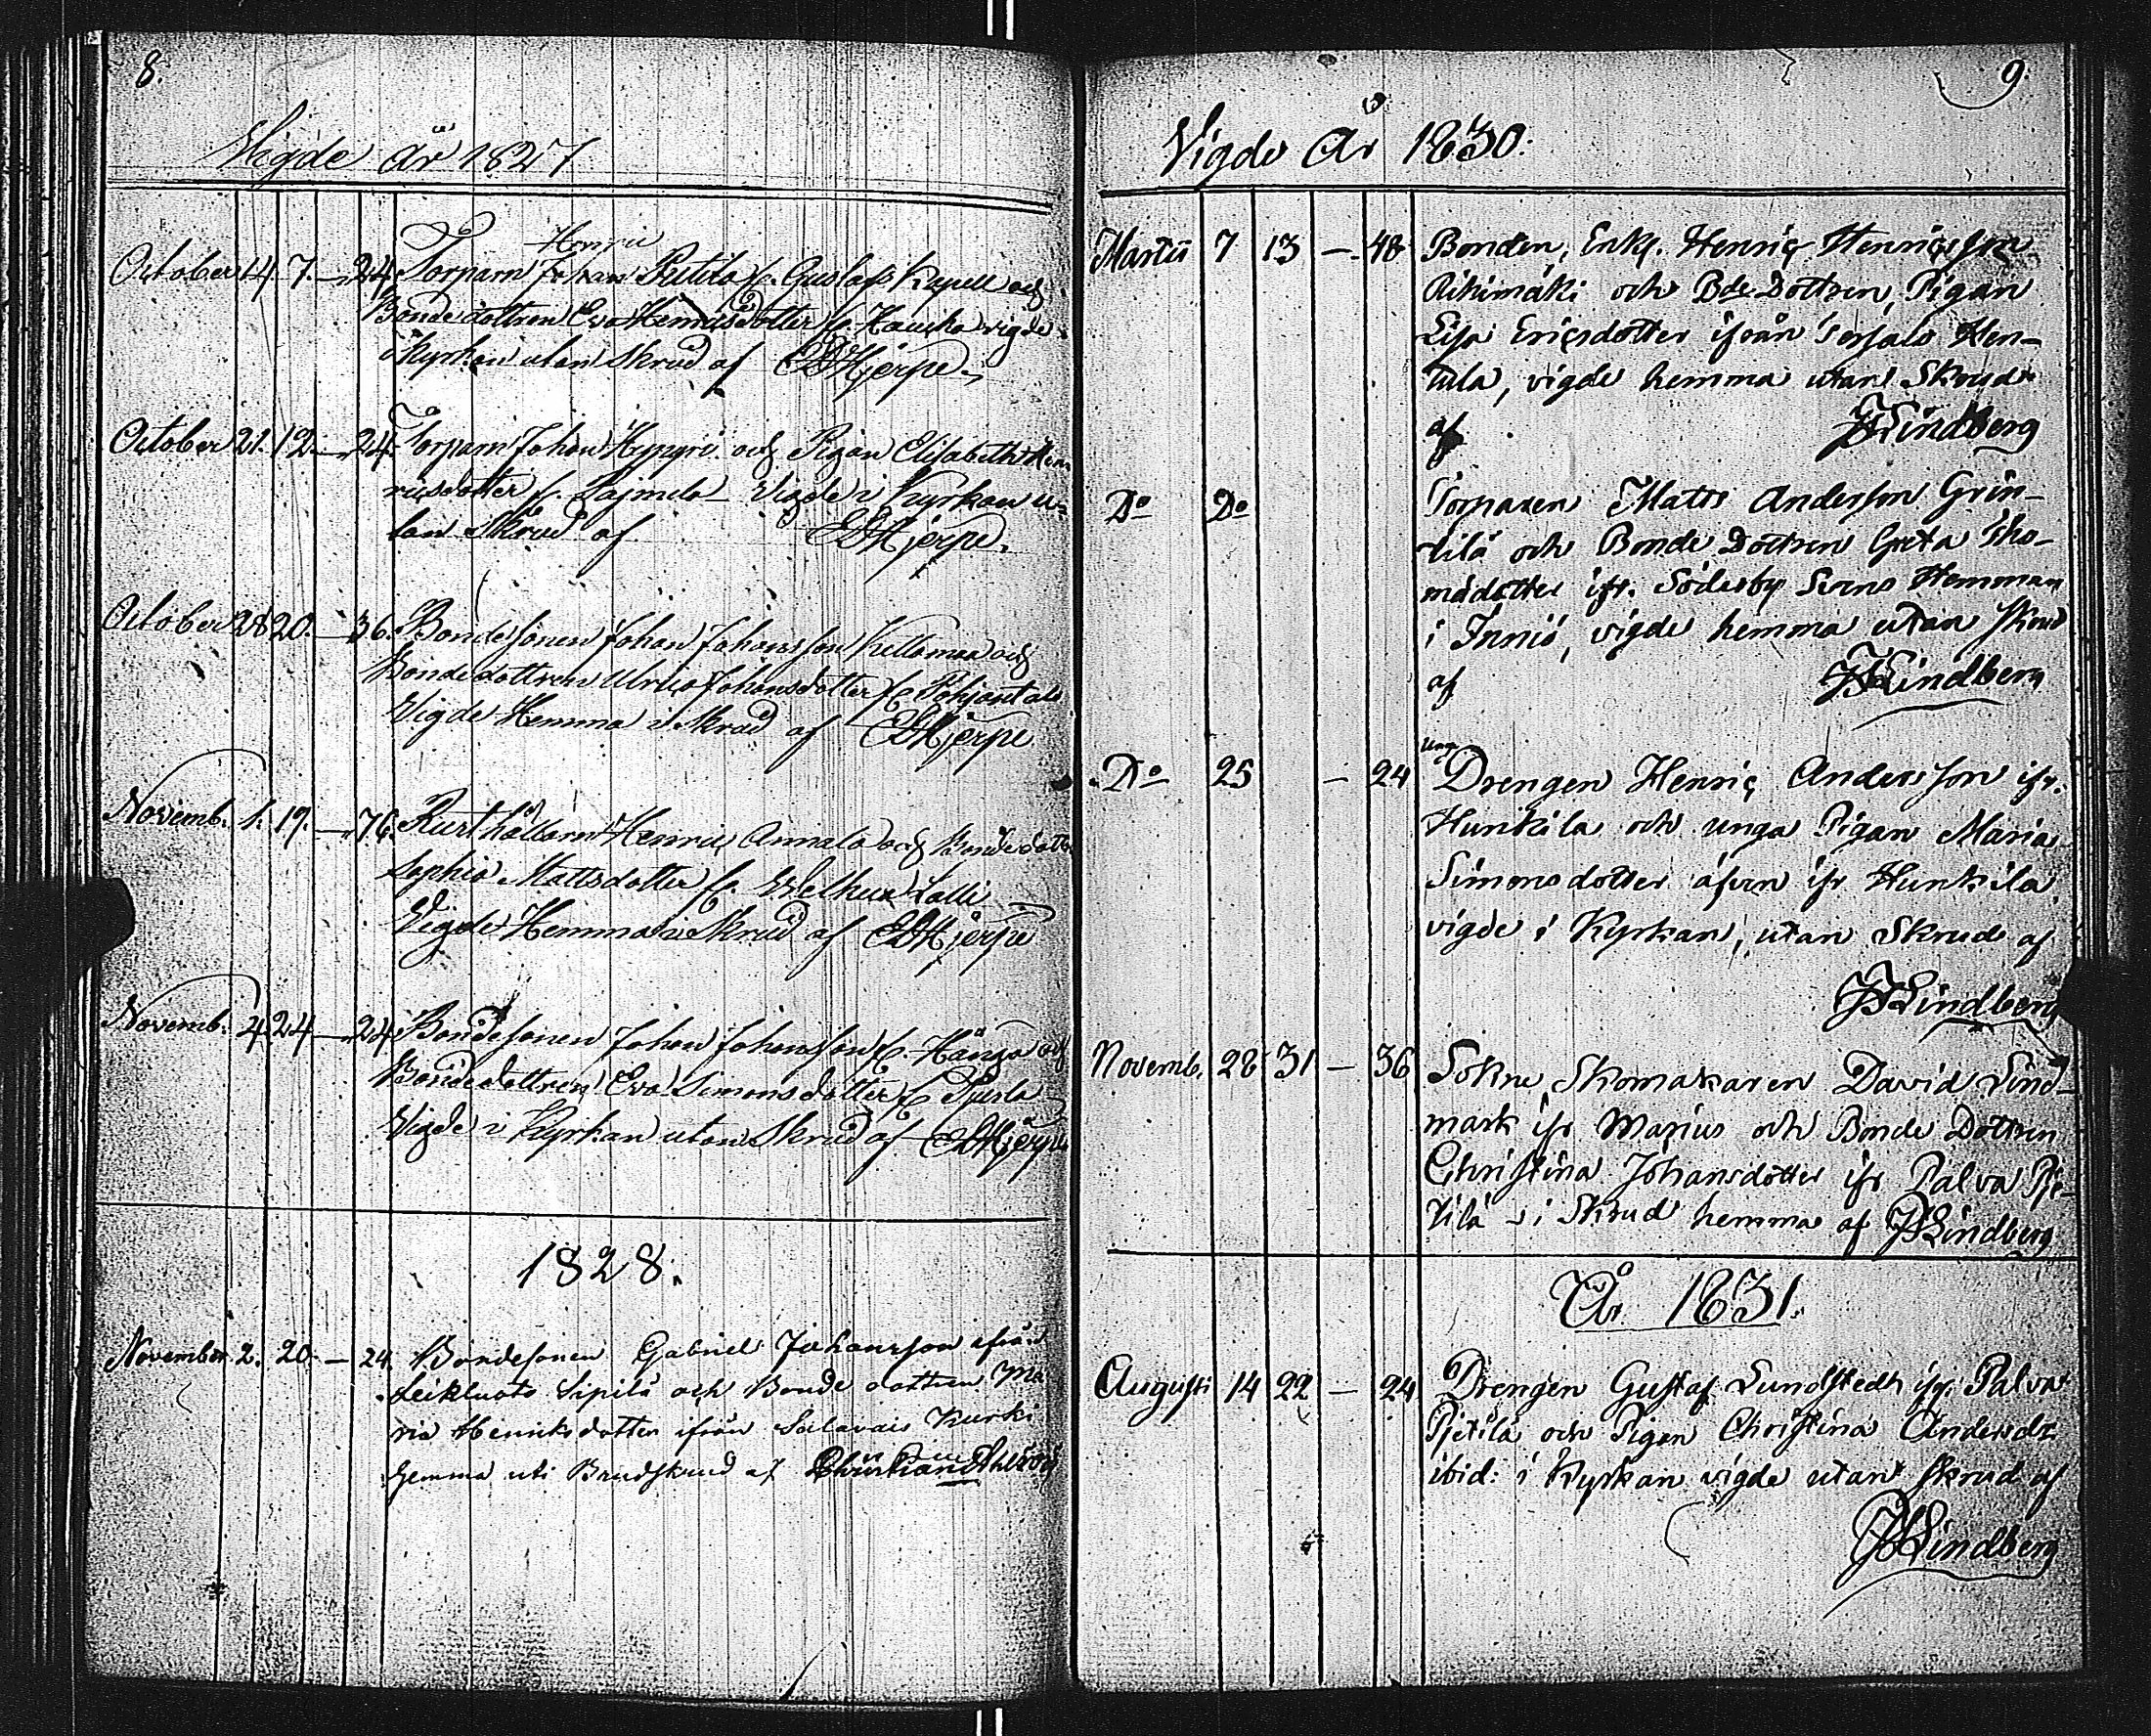 8.
Wigde år 1827
Henric
October 14. 7. — 24. Torparn Johan Pietilä fr. Gustafs Kapell och
Bondedottren Eva Henricsdotter fr. Hauska vigde
i Kyrkan utan Skrud af EDHjerpe.
October 21. 12. — 24. Torparn Johan Hyppyri och Pigan Elisabeth Hen
ricsdotter fr. Lajmela Vigde i Kyrkan u-
tan Skrud af EDHjerpe.
October 28 20. — 36. Bondesonen Johan Johansson Kellamaa och
Bondedottren Ulrica Johansdotter fr. Pohjantalo
Vigde Hemma i Skrud af EDHjerpe
Novemb. 1. 19. — 76. Rusthållarn Henric Annala och Bondedottr
Sophia Mattsdotter fr. Welhua Lalli
Vigde Hemma i Skrud af EDHjerpe
Novemb. 4. 24. — 24. Bondesonen Johan Johansson fr. Hänga och
Bondedottren Eva Simonsdotter fr.
Vigde i Kyrkan utan Skrud af EDHjerpe
1828.
November 2. 20. — 24. Bondesonen Gabriel Johansson ifrån
Leikluoto Sipilä och Bonde dottren Ma
ria Henriksdotter ifrån Salavais Kurki
hemma uti Brudskrud af Christian
9.
Vigde År 1830.
Martii 7 13 — 48 Bonden, Enkl. Henric Henricsson
Rihimäki och Bde Dottren, Pigan
Lisa Ericsdotter ifrån Tersalo Hen-
tula, vigde hemma utan Skrud
af Lindberg
Do Do Torparen Matts Andersson Grin-
tilä och Bonde Dottren Greta Tho-
madotter ifr. Söderby Svens Hemman
i Iniö, vigde hemma utan skrud
af Lindberg
Unge
Do 25 — 24 Drengen Henric Andersson ifr.
Hunkila och unga Pigan Maria
Simonsdotter äfven ifr Hunkila
vigde i Kyrkan, utan Skrud af
Lindberg
Novemb. 28 31 — 36 Sokne Skomakaren David Lind-
mark ifr Masius och Bonde Dottren
Christina Johansdotter ifr Palva Pje-
tilä i Skrud hemma af Lindberg
År 1831.
Augusti 14 22 — 24 Drengen Gustaf Lundstedt ifr. Palva
Pjetilä och Pigan Christina Andersdr
ibid: i Kyrkan vigde utan skrud af
Lindberg